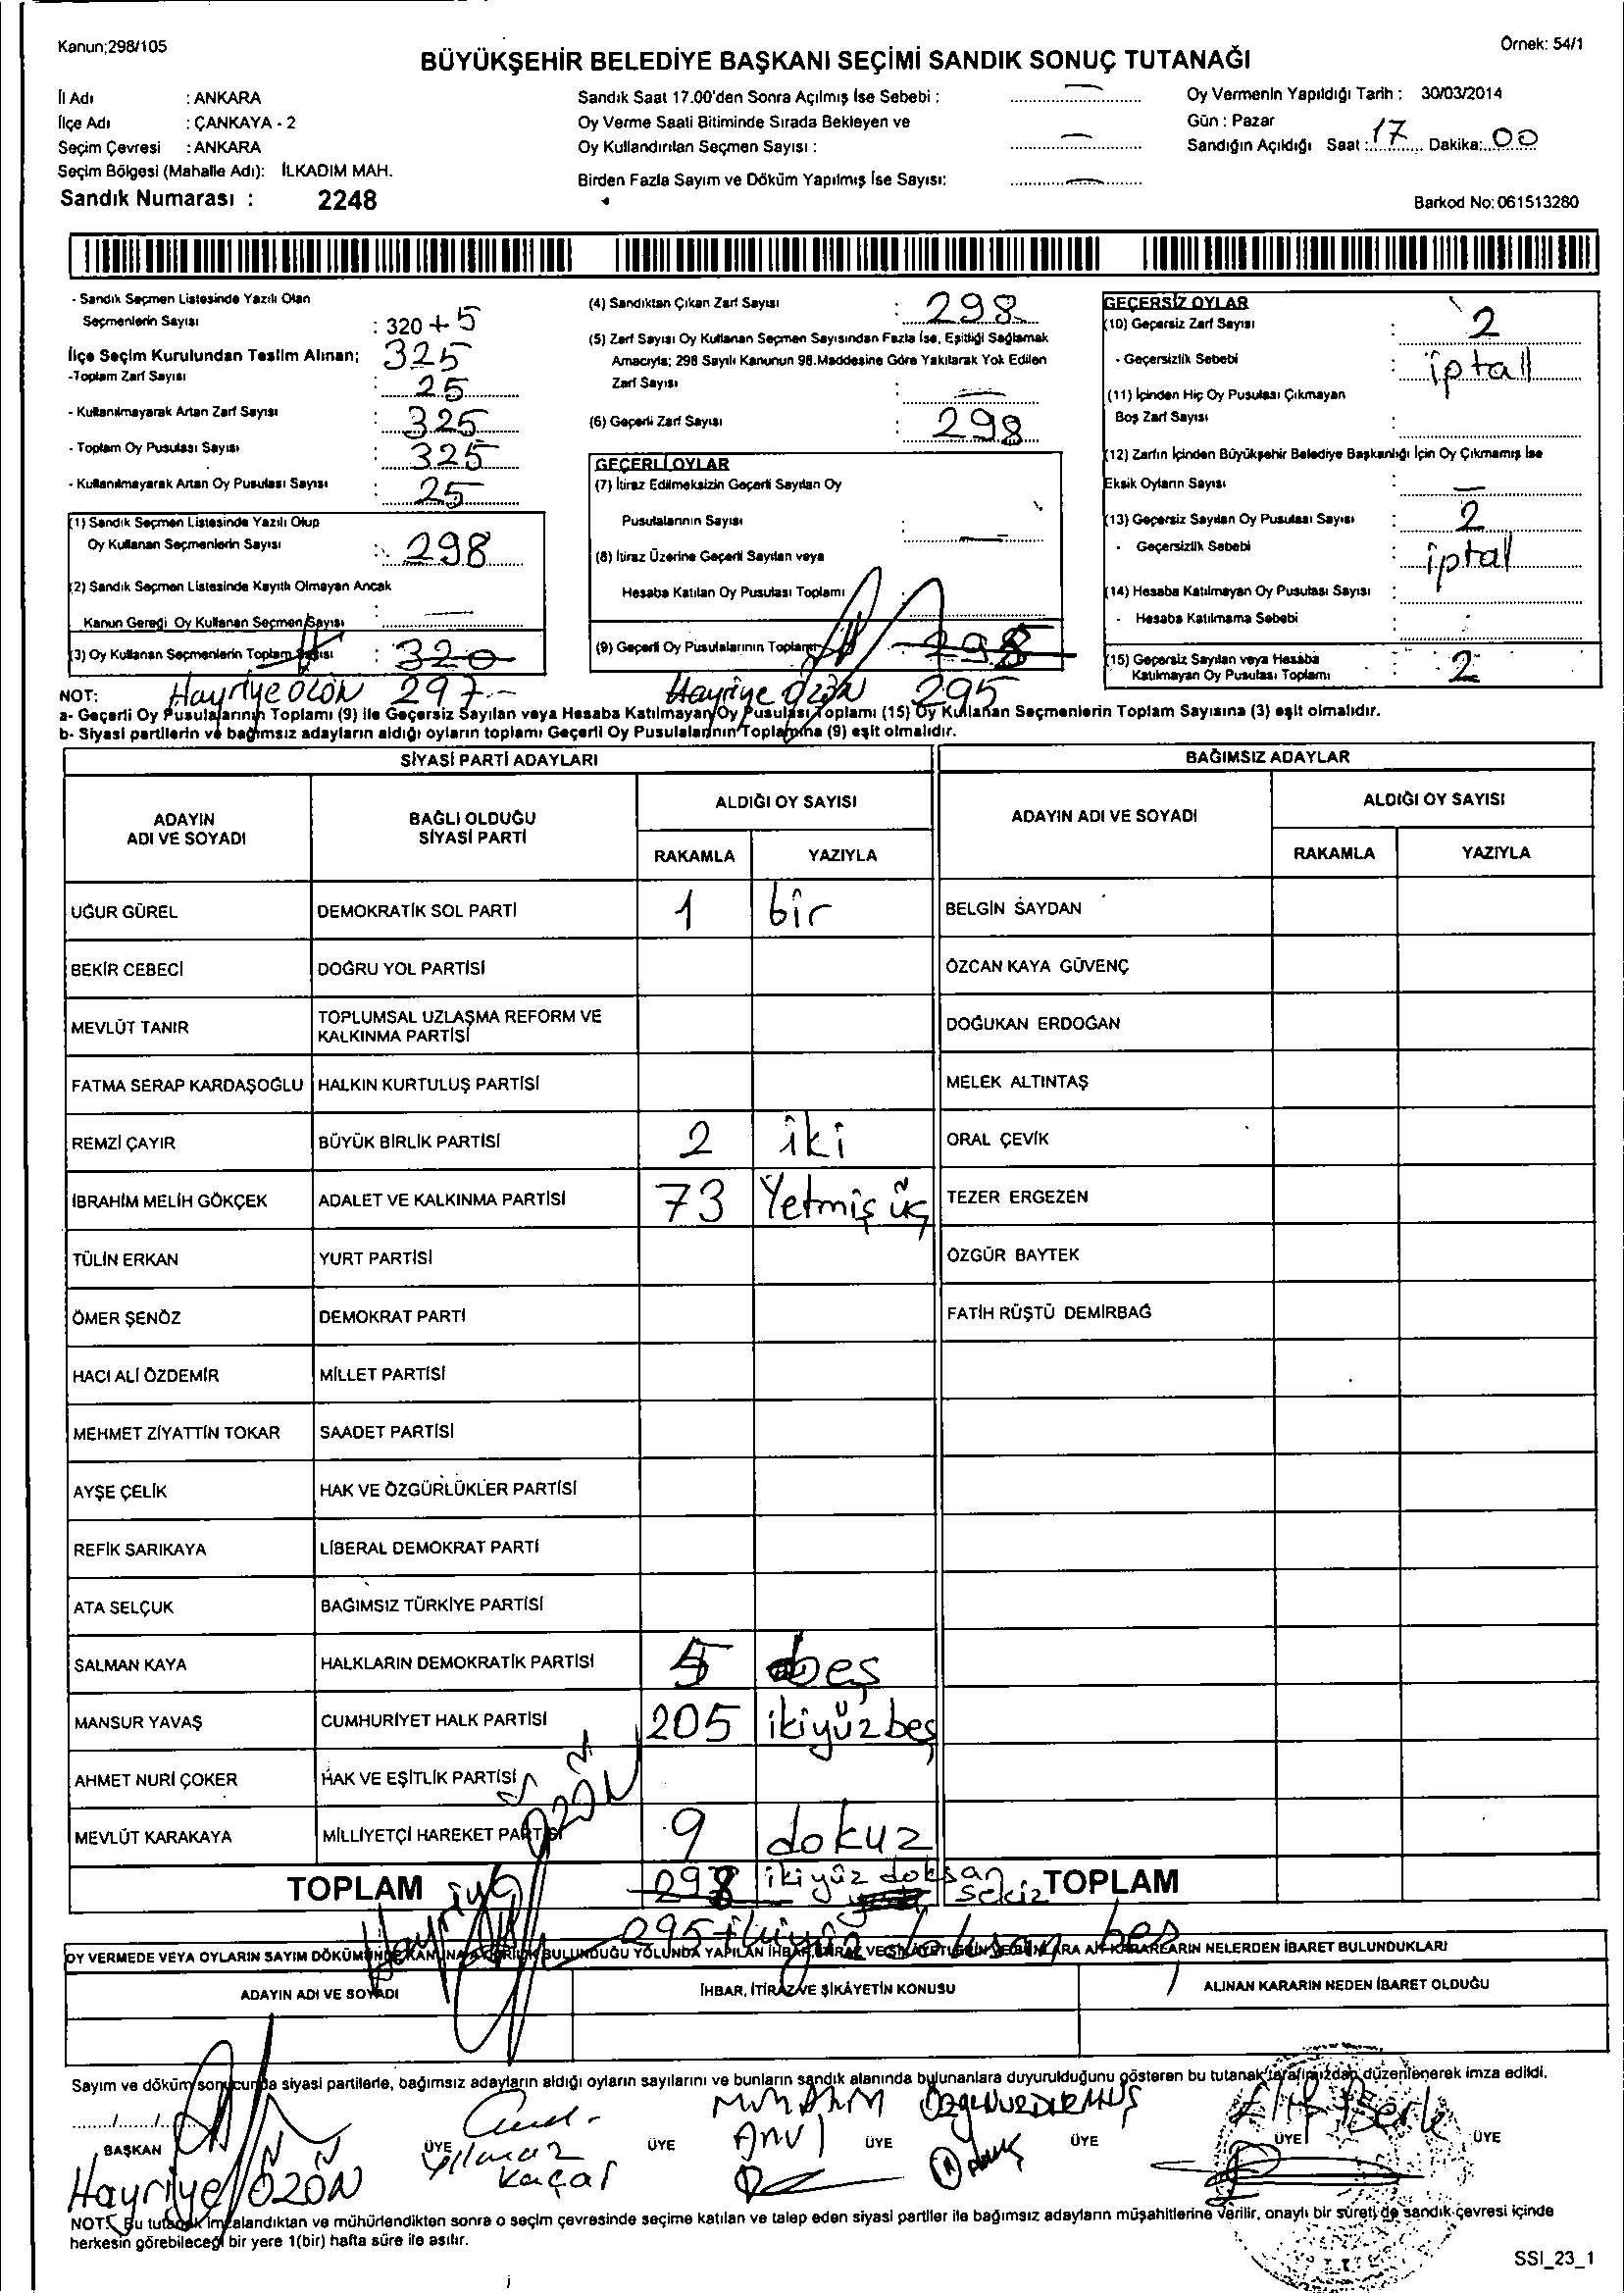 Kanun;298/105
Örnek: 54/1
BÜYÜKŞEHİR BELEDİYE BAŞKANI SEÇİMİ SANDIK SONUÇ TUTANAĞI
İl Adı : ANKARA
İlçe Adı : ÇANKAYA - 2
Seçim Çevresi : ANKARA
Seçim Bölgesi (Mahalle Adı): İLKADIM MAH.
Sandık Numarası : 2248
Sandık Saat 17.00'den Sonra Açılmış İse Sebebi :
Oy Verme Saati Bitiminde Sırada Bekleyen ve
Oy Kullandırılan Seçmen Sayısı :
Birden Fazla Sayım ve Döküm Yapılmış İse Sayısı:
Oy Vermenin Yapıldığı Tarih : 30/03/2014
Gün : Pazar
Sandığın Açıldığı Saat : 17 Dakika: 00
Barkod No: 061513280
- Sandık Seçmen Listesinde Yazılı Olan
Seçmenlerin Sayısı : 320 + 5
İlçe Seçim Kurulundan Teslim Alınan; 325
-Toplam Zarf Sayısı : 25
- Kullanılmayarak Artan Zarf Sayısı : 325
- Toplam Oy Pusulası Sayısı : 325
- Kullanılmayarak Artan Oy Pusulası Sayısı : 25
(1) Sandık Seçmen Listesinde Yazılı Olup
Oy Kullanan Seçmenlerin Sayısı : 298
(2) Sandık Seçmen Listesinde Kayıtlı Olmayan Ancak
Kanun Gereği Oy Kullanan Seçmen Sayısı :
(3) Oy Kullanan Seçmenlerin Toplam Sayısı : 320
Hayriye ÖZÖN 297
(4) Sandıktan Çıkan Zarf Sayısı : 298
(5) Zarf Sayısı Oy Kullanan Seçmen Sayısından Fazla İse, Eşitliği Sağlamak
Amacıyla; 298 Sayılı Kanunun 98.Maddesine Göre Yakılarak Yok Edilen
Zarf Sayısı :
(6) Geçerli Zarf Sayısı : 298
GEÇERLİ OYLAR
(7) İtiraz Edilmeksizin Geçerli Sayılan Oy
Pusulalarının Sayısı :
(8) İtiraz Üzerine Geçerli Sayılan veya
Hesaba Katılan Oy Pusulası Toplamı
(9) Geçerli Oy Pusulalarının Toplamı 298
Hayriye ÖZÖN 295
GEÇERSİZ OYLAR
(10) Geçersiz Zarf Sayısı : 2
- Geçersizlik Sebebi : iptal
(11) İçinden Hiç Oy Pusulası Çıkmayan
Boş Zarf Sayısı :
(12) Zarfın İçinden Büyükşehir Belediye Başkanlığı İçin Oy Çıkmamış İse
Eksik Oyların Sayısı :
(13) Geçersiz Sayılan Oy Pusulası Sayısı : 2
- Geçersizlik Sebebi : iptal
(14) Hesaba Katılmayan Oy Pusulası Sayısı :
- Hesaba Katılmama Sebebi :
(15) Geçersiz Sayılan veya Hesaba
Katılmayan Oy Pusulası Toplamı : 2
NOT:
a- Geçerli Oy Pusulalarının Toplamı (9) ile Geçersiz Sayılan veya Hesaba Katılmayan Oy Pusulası Toplamı (15) Oy Kullanan Seçmenlerin Toplam Sayısına (3) eşit olmalıdır.
b- Siyasi partilerin ve bağımsız adayların aldığı oyların toplamı Geçerli Oy Pusulalarının Toplamına (9) eşit olmalıdır.
SİYASİ PARTİ ADAYLARI
BAĞIMSIZ ADAYLAR
ADAYIN ADI VE SOYADI
BAĞLI OLDUĞU SİYASİ PARTİ
ALDIĞI OY SAYISI
RAKAMLA YAZIYLA
ADAYIN ADI VE SOYADI
ALDIĞI OY SAYISI
RAKAMLA YAZIYLA
UĞUR GÜREL DEMOKRATİK SOL PARTİ 1 bir BELGİN SAYDAN
BEKİR CEBECİ DOĞRU YOL PARTİSİ ÖZCAN KAYA GÜVENÇ
MEVLÜT TANIR TOPLUMSAL UZLAŞMA REFORM VE KALKINMA PARTİSİ DOĞUKAN ERDOĞAN
FATMA SERAP KARDAŞOĞLU HALKIN KURTULUŞ PARTİSİ MELEK ALTINTAŞ
REMZİ ÇAYIR BÜYÜK BİRLİK PARTİSİ 2 iki ORAL ÇEVİK
İBRAHİM MELİH GÖKÇEK ADALET VE KALKINMA PARTİSİ 73 Yetmiş üç TEZER ERGEZEN
TÜLİN ERKAN YURT PARTİSİ ÖZGÜR BAYTEK
ÖMER ŞENÖZ DEMOKRAT PARTİ FATİH RÜŞTÜ DEMİRBAĞ
HACI ALİ ÖZDEMİR MİLLET PARTİSİ
MEHMET ZİYATTİN TOKAR SAADET PARTİSİ
AYŞE ÇELİK HAK VE ÖZGÜRLÜKLER PARTİSİ
REFİK SARIKAYA LİBERAL DEMOKRAT PARTİ
ATA SELÇUK BAĞIMSIZ TÜRKİYE PARTİSİ
SALMAN KAYA HALKLARIN DEMOKRATİK PARTİSİ 5 beş
MANSUR YAVAŞ CUMHURİYET HALK PARTİSİ 205 ikiyüzbeş
AHMET NURİ ÇOKER HAK VE EŞİTLİK PARTİSİ
MEVLÜT KARAKAYA MİLLİYETÇİ HAREKET PARTİSİ 9 dokuz
TOPLAM 298 ikiyüz doksan sekiz TOPLAM
Hayriye ÖZÖN 295 ikiyüz doksan beş
OY VERMEDE VEYA OYLARIN SAYIM DÖKÜMÜNDE KANUNA AYKIRILIK BULUNDUĞU YOLUNDA YAPILAN İHBAR, İTİRAZ VE ŞİKAYETLERİN VE BUNLARA AİT KARARLARIN NELERDEN İBARET BULUNDUKLARI
ADAYIN ADI VE SOYADI İHBAR, İTİRAZ VE ŞİKÂYETİN KONUSU ALINAN KARARIN NEDEN İBARET OLDUĞU
Sayım ve döküm sonucunda siyasi partilerle, bağımsız adayların aldığı oyların sayılarını ve bunların sandık alanında bulunanlara duyurulduğunu gösteren bu tutanak tarafımızdan düzenlenerek imza edildi.
....../....../......
BAŞKAN ÜYE ÜYE ÜYE ÜYE ÜYE ÜYE
Hayriye ÖZÖN
Yılmaz Kaçar
Elif Berk
NOT: Bu tutanak imzalandıktan ve mühürlendikten sonra o seçim çevresinde seçime katılan ve talep eden siyasi partiler ile bağımsız adayların müşahitlerine verilir, onaylı bir sureti de sandık çevresi içinde
herkesin görebileceği bir yere 1(bir) hafta süre ile asılır.
SSI_23_1